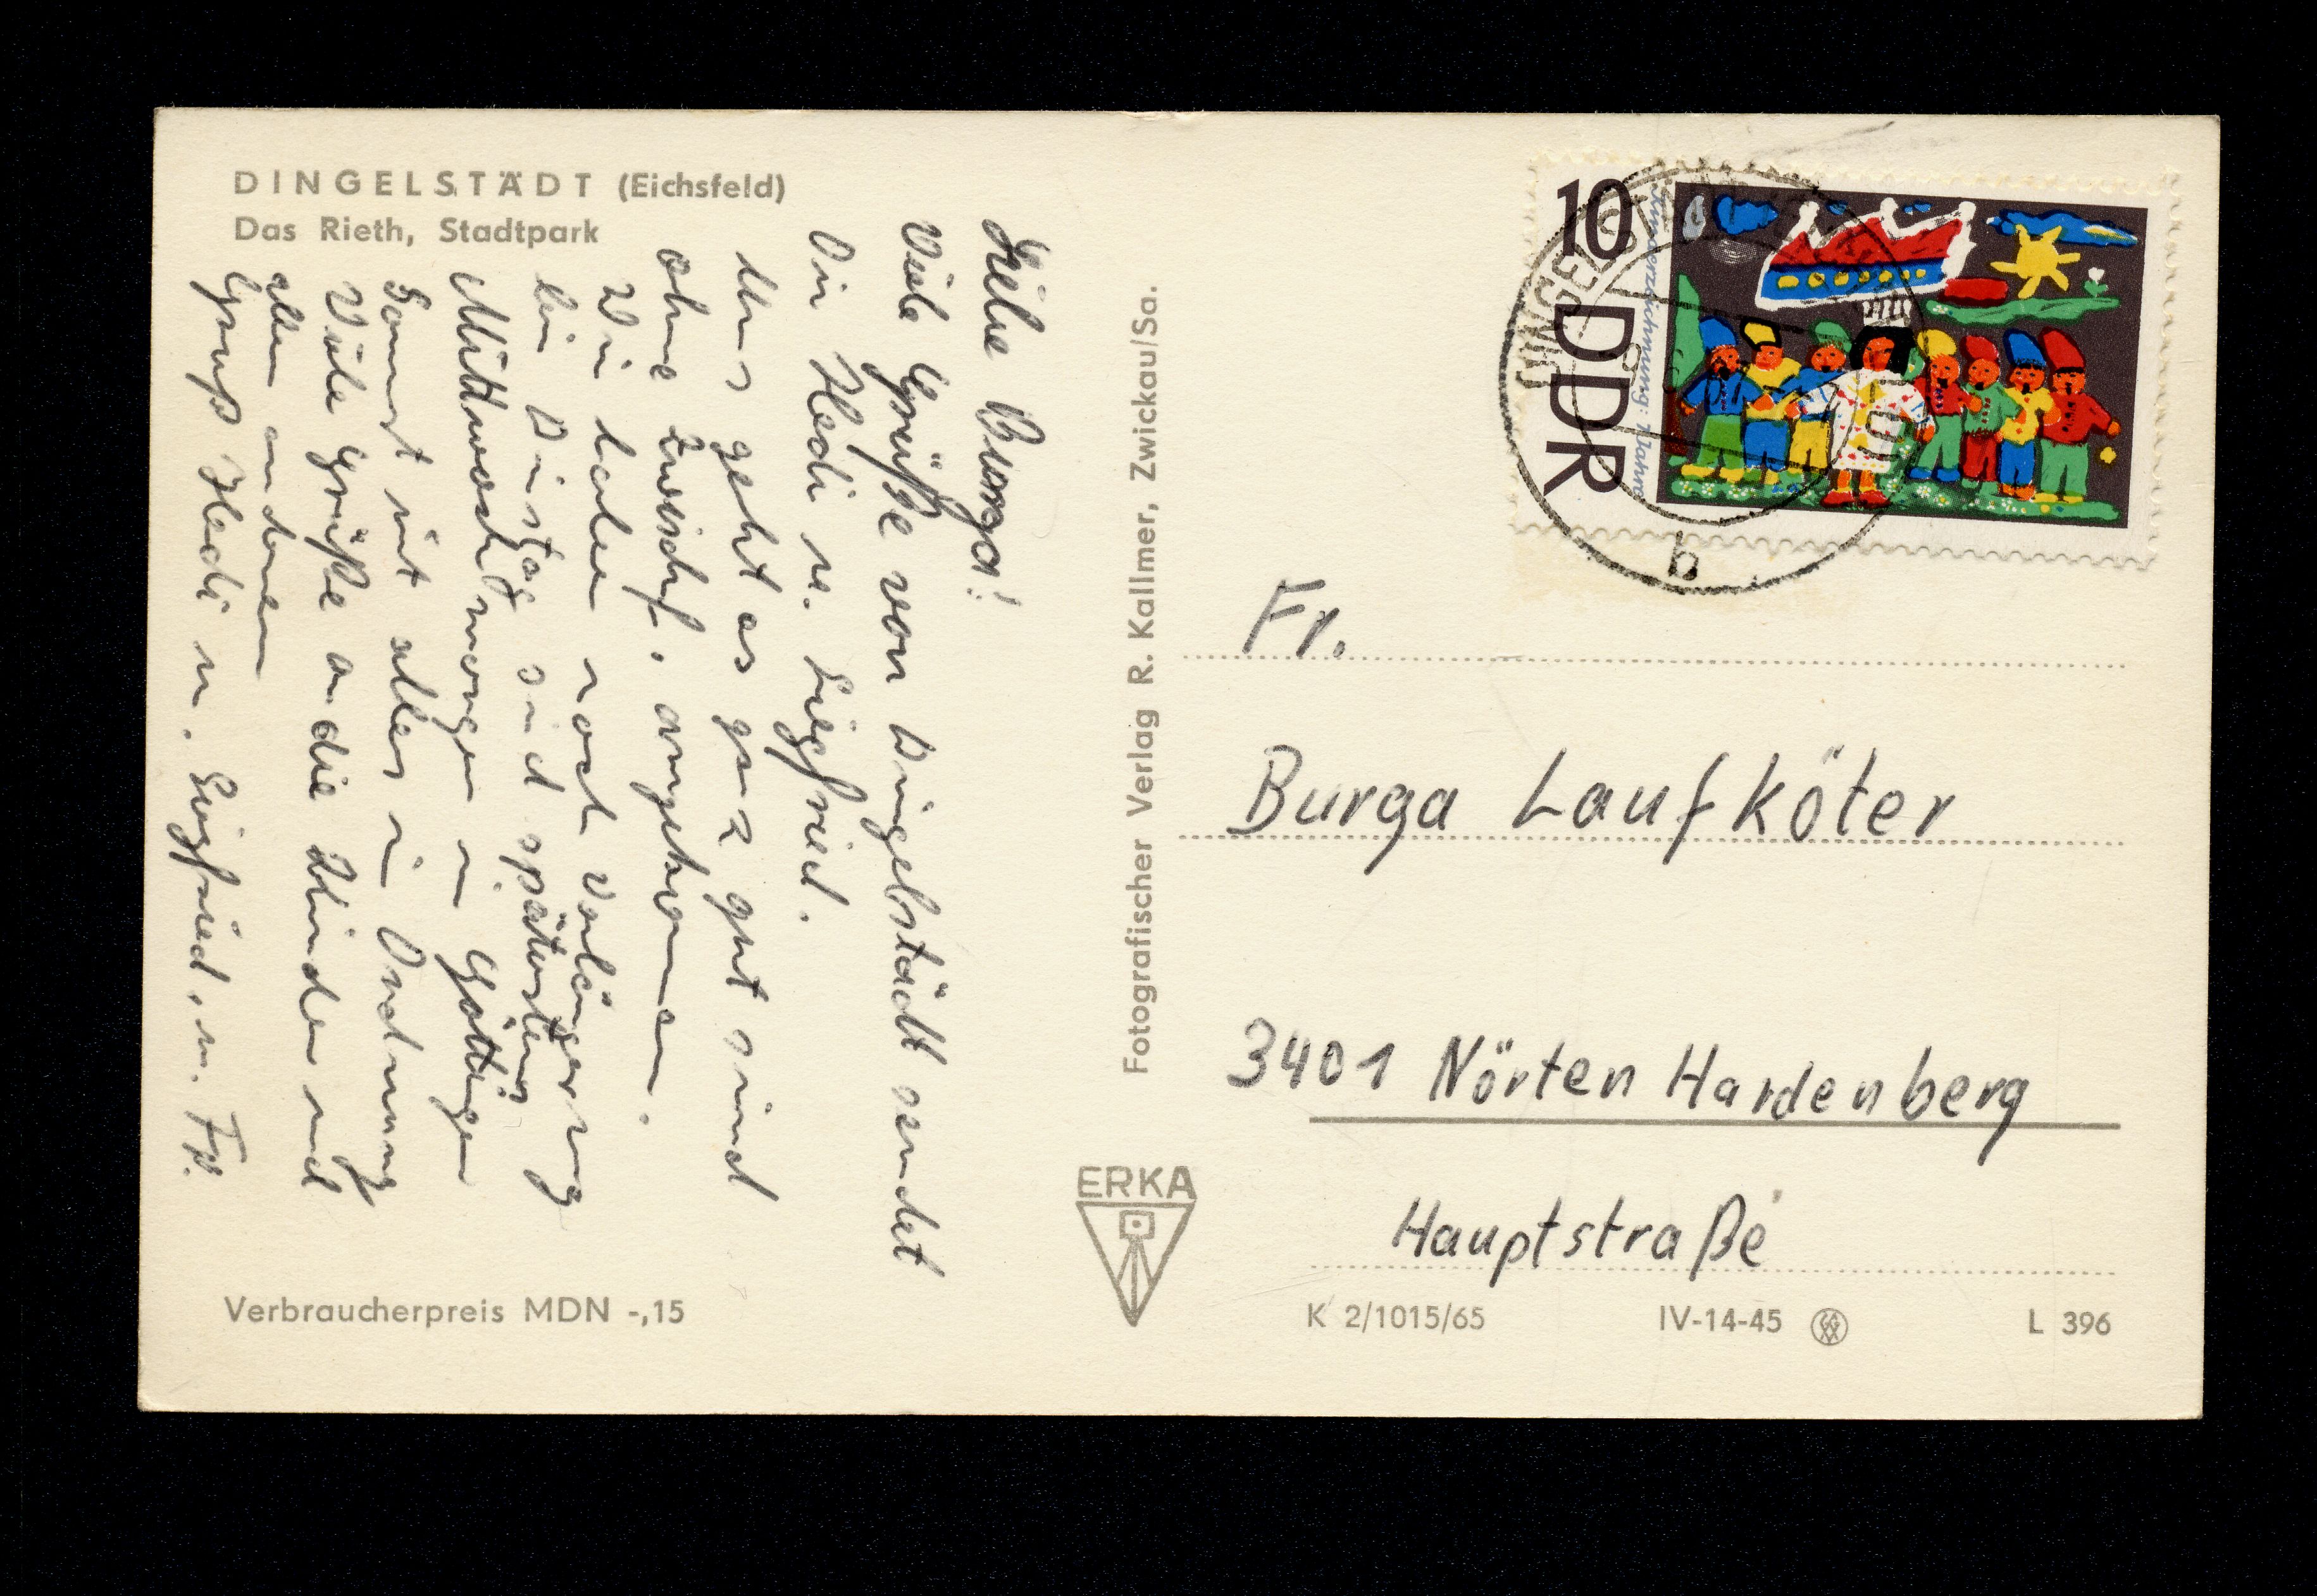 DINGELSTÄDT (Eichsfeld)
Das Rieth, Stadtpark
Liebe Burga!
Viele Grüße von Dingelstädt sendet
Dir Hedi u. Siegfried.
Uns geht es ganz gut sind
ohne Zwischf. angekommen.
Wir haben noch Verlängerung
bis Dinstag sind spätestens
Mittwochmorgen in Göttingen
Sonnst ist alles in Ordnung
Viele Grüße an die Kinder und
allen anderen
Gruß Hedi u. Siegfried. u. Fr.
Verbraucherpreis MDN -,15
Fotografischer Verlag R. Kallmer, Zwickau/Sa.
ERKA
10
DDR
Kinderzeichnung: 7 Jahre
b
Fr.
Burga Laufköter
3401 Nörten Hardenberg
Hauptstraße
K 2/1015/65
IV-14-45
L 396